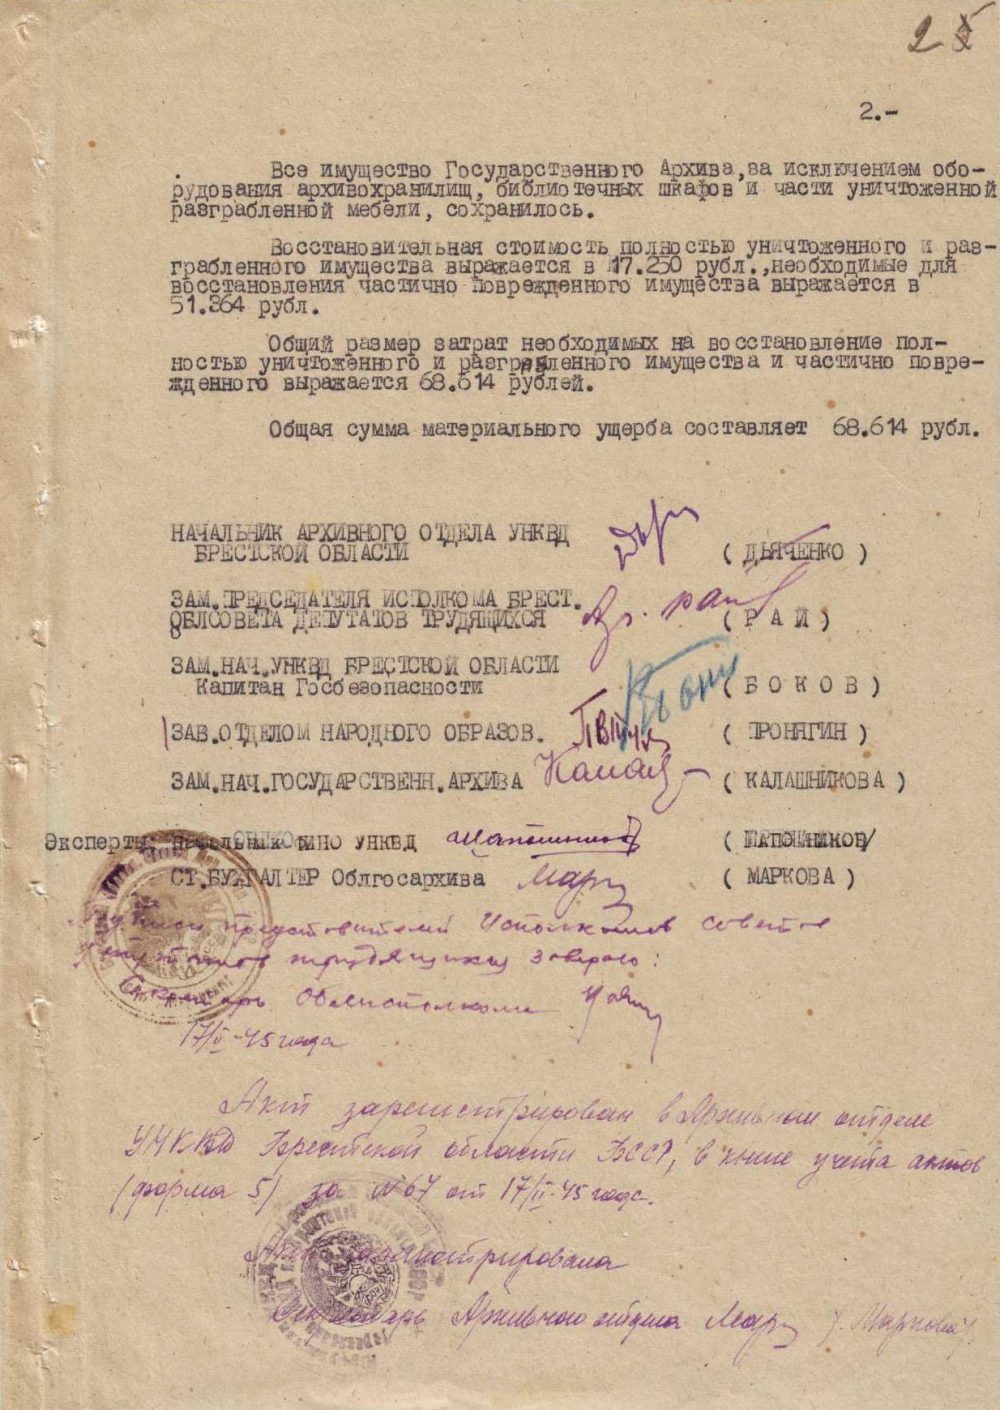 2
2.-
Все имущество Государственного Архива,за исключением обо-
рудования архивохранилищ, библиотечных шкафов и части уничтоженной
разграбленной мебели, сохранилось.
Восстановительная стоимость полностью уничтоженного и раз-
грабленного имущества выражается в 17.250 рубл.,необходимые для
восстановления частично поврежденного имущества выражается в
51.364 рубл.
Общий размер затрат необходимых на восстановление пол-
ностью уничтоженного и разграбленного имущества и частично повре-
жденного выражается 68.614 рублей.
Общая сумма материального ущерба составляет 68.614 рубл.
НАЧАЛЬНИК АРХИВНОГО ОТДЕЛА УНКВД
БРЕСТСКОЙ ОБЛАСТИ ( ДЬЯЧЕНКО )
ЗАМ.ПРЕДСЕДАТЕЛЯ ИСПОЛКОМА БРЕСТ.
ОБЛСОВЕТА ДЕПУТАТОВ ТРУДЯЩИХСЯ ( Р А Й )
ЗАМ.НАЧ.УНКВД БРЕСТСКОЙ ОБЛАСТИ
Капитан Госбезопасности ( Б О К О В )
ЗАВ.ОТДЕЛОМ НАРОДНОГО ОБРАЗОВ. ( ПРОНЯГИН )
ЗАМ.НАЧ.ГОСУДАРСТВЕНН.АРХИВА ( КАЛАШНИКОВА )
Эксперты: Начальник ОИНО УНКВД Шапошников ( ШАПОШНИКОВ/
СТ.БУХГАЛТЕР Облгосархива Марк ( МАРКОВА )
представителей Исполкомов советов
депутатов трудящихся заверяю:
Секретарь Облисполкома
17/II-45 года
Акт зарегистрирован в Архивном отделе
УНКВД Брестской области БССР, в книге учета актов
(форма 5) за №67 от 17/II-45 года.
Акт зарегистрировала
Секретарь Архивного отдела Марк /Маркова/.